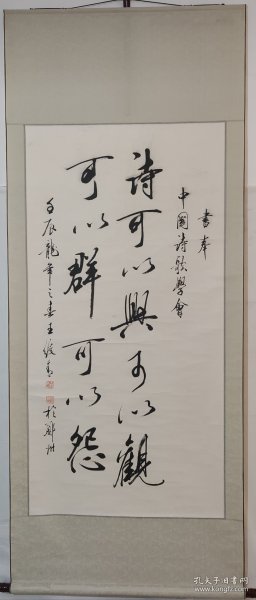 書奉
中國詩歌學會
詩可以興可以觀
可以群可以怨
壬辰龍年之春王绶青
於鄭州
孔夫子旧书网
www.kongfz.com